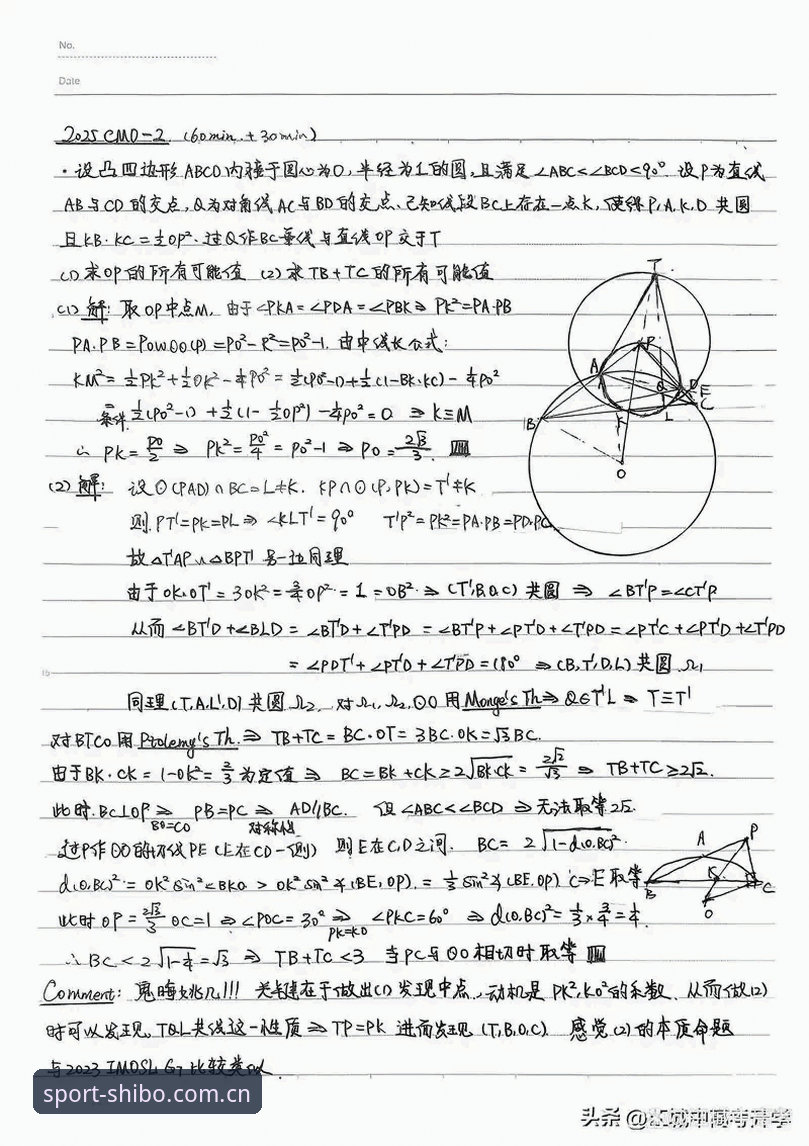 No.
Date
2025 CMO-2. (60min + 30min)
·设凸四边形ABCD内接于圆心为O,半径为1的圆,且满足∠ABC<∠BCD<90°. 设P为直线
AB与CD的交点,Q为对角线AC与BD的交点.已知线段BC上存在一点K,使得P,A,K,D共圆
且KB·KC=½OP².过Q作BC垂线与直线OP交于T
(1)求OP的所有可能值 (2)求TB+TC的所有可能值
(1)解:取OP中点M,由于∠PKA=∠PDA=∠PBK⇒PK²=PA·PB
PA·PB=Pow⊙O(P)=PO²-R²=PO²-1.由中线长公式:
KM²=½PK²+½OK²-¼PO²=½(PO²-1)+½(1-BK·KC)-¼PO²
条件 ½(PO²-1)+½(1-½OP²)-¼PO²=0 ⇒ K≡M
∴ PK=PO/2 ⇒ PK²=PO²/4=PO²-1 ⇒ PO=2√3/3.
(2)解: 设⊙(PAD)∩BC=L≠K. KP∩⊙(P,PK)=T'≠K
则PT'=PK=PL⇒∠KLT'=90° T'P²=PK²=PA·PB=PD·PC
故△T'AP∽△BPT' 另一边同理
由于OK·OT'=3OK²=¾OP²=1=OB²⇒(T',B,O,C)共圆 ⇒ ∠BT'P=∠CT'P
从而∠BT'D+∠BLD=∠BT'D+∠T'PD=∠BT'P+∠PT'D+∠T'PD=∠PT'C+∠PT'D+∠T'PD
=∠PDT'+∠PT'D+∠T'PD=180° ⇒(B,T',D,L)共圆Ω₁
同理(T,A,L,D)共圆Ω₂. 对Ω₁,Ω₂,⊙O用Monge's Th⇒Q∈T'L⇒T≡T'
对BTCO用Ptolemy's Th.⇒ TB+TC=BC·OT=3BC·OK=√3BC.
由于BK·CK=1-OK²=2/3为定值⇒ BC=BK+CK≥2√BK·CK=2√2/√3 ⇒ TB+TC≥2√2.
此时BC⊥OP⇒PB=PC⇒AD//BC. 但∠ABC<∠BCD⇒无法取等2√2.
BO=CO 对称性
过P作⊙O的切线PE(E在CD一侧) 则E在C,D之间. BC=2√1-d(O,BC)².
d(O,BC)²=OK²sin²∠BKO>OK²sin²∡(BE,OP).=⅓sin²∡(BE,OP) C→E取等
此时OP=2√3/3 OC=1⇒∠POC=30°⇒∠PKC=60° ⇒d(O,BC)²=⅓×¾=¼.
PK=KO
∴ BC<2√1-¼=√3 ⇒ TB+TC<3 当PC与⊙O相切时取等
Comment: 关键在于做出(1)发现中点,动机是PK²,KO²的系数. 从而做(2)
时可以发现TQL共线这一性质⇒TP=PK 进而发现(T,B,O,C). 感觉(2)的本质命题
与2023 IMOSL G7比较类似.
T
P
A
Q
D
E
C
B
K
L
O
A
P
B
K
C
O
sport-shibo.com.cn
头条